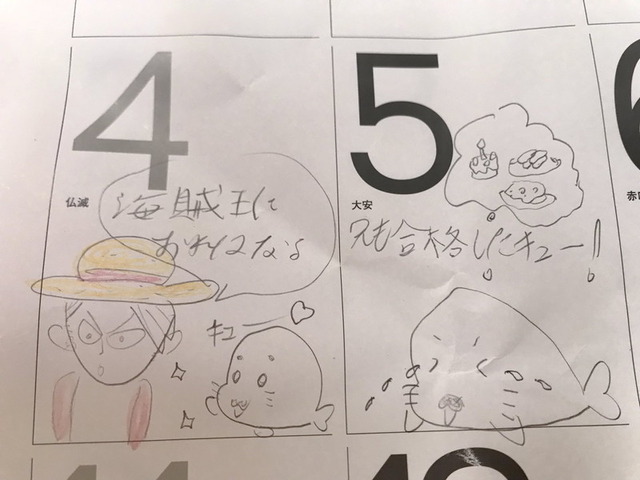 4
仏滅
海賊王に
おれはなる
キュー
5
大安
兄も合格したキュー!!
6
赤口
11
12